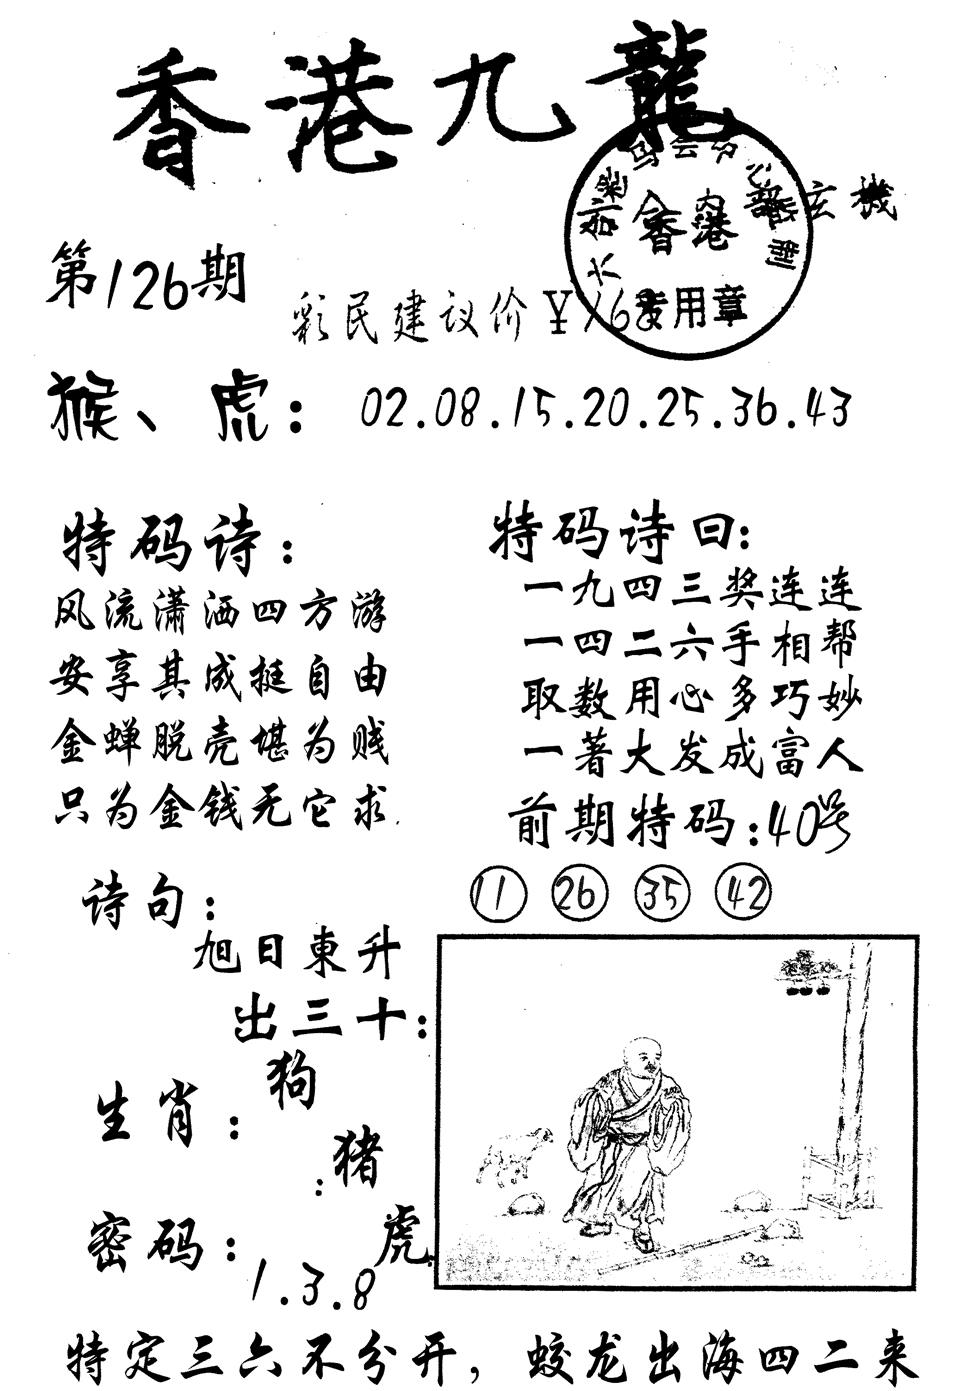 香港九龍
玄機
香港
专用章
第126期
彩民建议价￥168
猴、虎：02.08.15.20.25.36.43
特码诗：
风流潇洒四方游
安享其成挺自由
金蝉脱壳堪为贱
只为金钱无它求.
特码诗曰：
一九四三奖连连
一四二六手相帮
取数用心多巧妙
一著大发成富人
前期特码：40号
11 26 35 42
诗句：
旭日東升
出三十：
生肖：
狗
：猪
虎.
密码：
1.3.8
特定三六不分开，蛟龙出海四二来